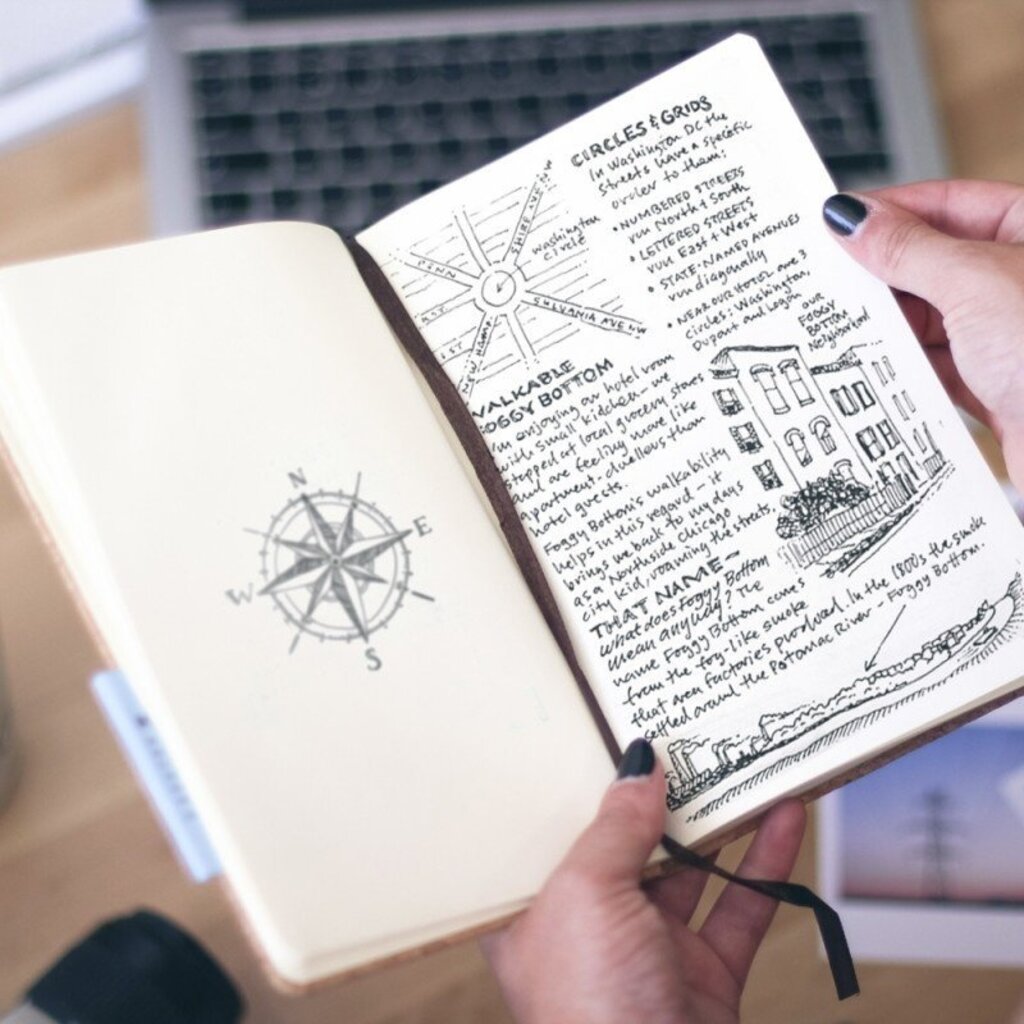 N
E
W
S
CIRCLES & GRIDS
In Washington DC the
streets have a specific
order to them:
• NUMBERED STREETS
run North & South
• LETTERED STREETS
run East & West
• STATE-NAMED AVENUES
run diagonally
• NEAR OUR HOTEL are 3
circles: Washington,
Dupont and Logan
SHIRE AVE NW
Washington
Circle
PENN
SYLVANIA AVE NW
NEW HAMP
WALKABLE
FOGGY BOTTOM
I'm enjoying our hotel room
with small kitchen - we
stopped at local grocery stores
and are feeling more like
apartment-dwellers than
hotel guests.
Foggy Bottom's walkability
helps in this regard - it
brings me back to my days
as a Northside Chicago
city kid, roaming the streets.
OUR
FOGGY
BOTTOM
Neighborhood
THAT NAME -
what does Foggy Bottom
mean anyway? The
name Foggy Bottom comes
from the fog-like smoke
that area factories produced. In the 1800s the smoke
settled around the Potomac River - Foggy Bottom.